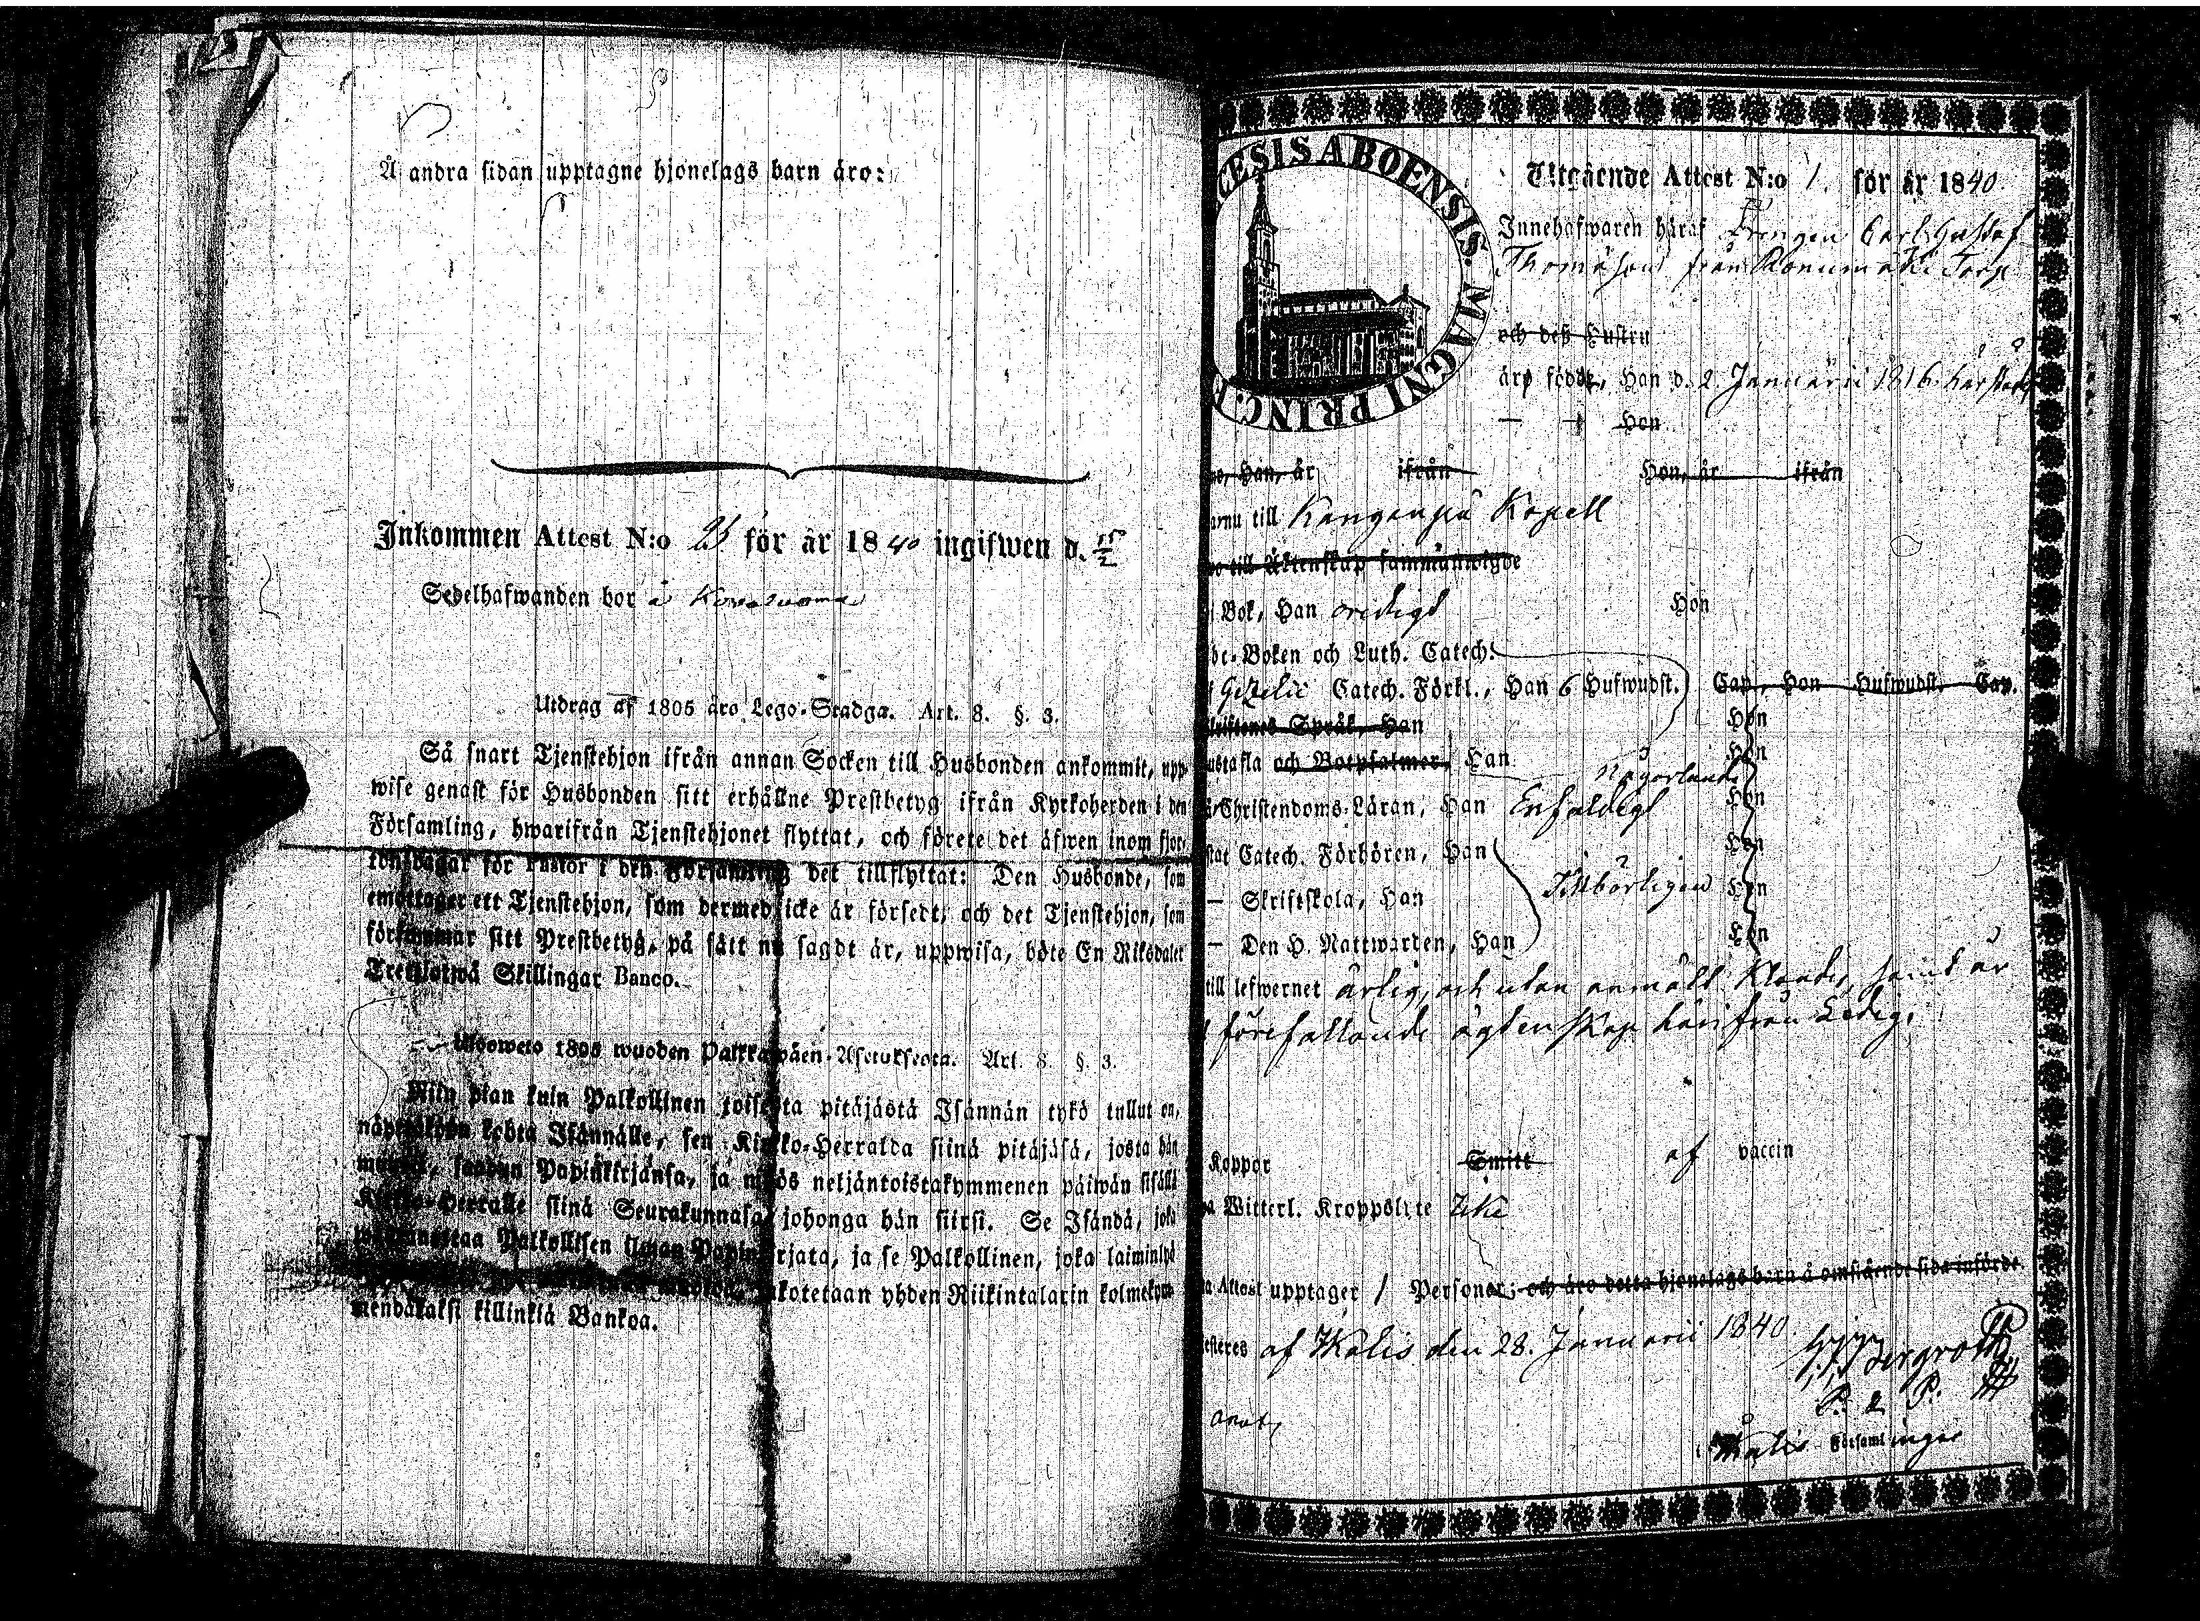 Å andra sidan upptagne hjonelags barn äro:
Inkommen Attest N:o 25 för år 1840 ingifwen d. 15/2
Sedelhafwanden bor å
Utdrag af 1805 års Lego-Stadga. Art. 8. §. 3.
Så snart Tjenstehjon ifrån annan Socken till Husbonden ankommit, upp-
wise genast för Husbonden sitt erhållne Prestbetyg ifrån Kyrkoherden i den
Församling, hwarifrån Tjenstehjonet flyttat, och förete det äfwen inom fjor-
tondagar för Pastor i den Församling det tillflyttat: Den Husbonde, som
emottager ett Tjenstehjon, som dermed icke är försedt, och det Tjenstehjon, som
försummar sitt Prestbetyg, på sätt nu sagdt är, uppwisa, böte En Riksdaler
Trettiotwå Skillingar Banco.
Ulosweto 1805 wuoden Palkkawäen-Asetuksesta. Art. 8. §. 3.
Niin pian kuin Palkollinen toisesta pitäjästä Isännän tykö tullut on,
kohta Isännälle, sen Kirkko-Herralda siinä pitäjäsä, josta hän
saadun Papinkirjansa, ja myös neljäntoistakymmenen päiwän sisällä
Kirkko-Herralle siinä Seurakunnasa johonga hän siirsi. Se Isändä, joka
Palkollisen ilman Papinkirjata, ja se Palkollinen, joka laiminlyö
sakotetaan yhden Riikintalarin kolmekym-
mendäkaksi killinkiä Bankoa.
CESIS ABOENSIS. MAGNI PRINC. F
Utgående Attest N:o 1. för år 1840.
Innehafwaren häraf Drengen Carl Gustaf
Thomasson från Torp
och deß Hustru
äro födde, Han d. 2 Januarii 1816 härstädes
— — Hon
Han, år ifrån Hon, år ifrån
till Kangenpä Kapell
till Äktenskap sammanwigde
Bok, Han Hon
Boken och Luth. Catech.
Gezelii Catech. Förkl., Han 6 Hufwudst. Cap., Hon Hufwudst. Cap.
Skriftenes Språk, Han Hon
ustafla och Botpsalmer, Han Hon
Någorlunda
Christendoms-Läran, Han Enfaldigt Hon
Catech. Förhören, Han Hon
— Skriftskola, Han Tillbörligen Hon
— Den H. Nattwarden, Han Hon
till lefwernet ärlig, och utan anmält Klander, samt är
förefallande ägtenskap härifrån Ledig.
Koppor Smitt af vaccin
Witterl. Kroppslyte Icke
Attest upptager 1 Personer; och äro detta hjonelags barn å omstående sida införde.
esteres af Kalis den 28. Januarii 1840.
Bergroth
P. & P.
Kalis Församlingar